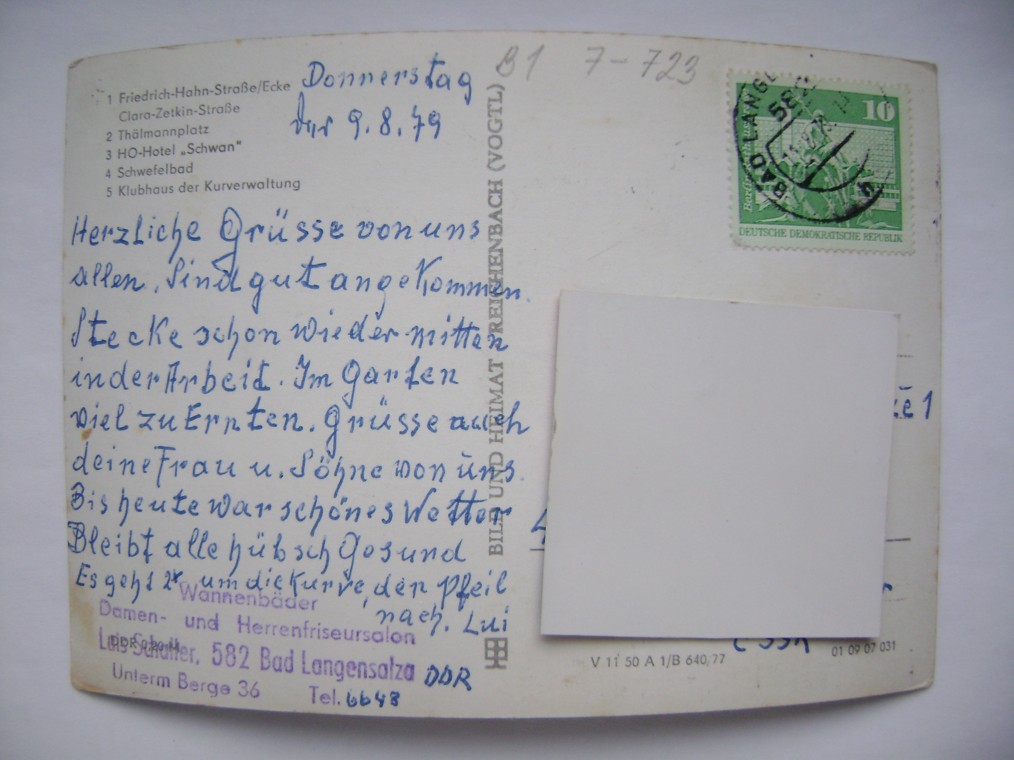 B1 7-723
1 Friedrich-Hahn-Straße/Ecke
Clara-Zetkin-Straße
2 Thälmannplatz
3 HO-Hotel „Schwan"
4 Schwefelbad
5 Klubhaus der Kurverwaltung
Donnerstag
9.8.79
Herzliche Grüsse von uns
allen. Sind gut angekommen.
Stecke schon wieder mitten
in der Arbeit. Im Garten
viel zu Ernten. Grüsse auch
deine Frau u. Söhne von uns.
Bis heute war schönes Wetter
Bleibt alle hübsch Gesund
Es geht 2x um die Kurve, den Pfeil
nach. Lui
Wannenbäder
Damen- und Herrenfriseursalon
582 Bad Langensalza DDR
Unterm Berge 36 Tel. 6648
BILD UND HEIMAT REICHENBACH (VOGTL)
BAD LANG
10
DEUTSCHE DEMOKRATISCHE REPUBLIK
1
ČSSR
V 11 50 A 1/B 640/77
01 09 07 031